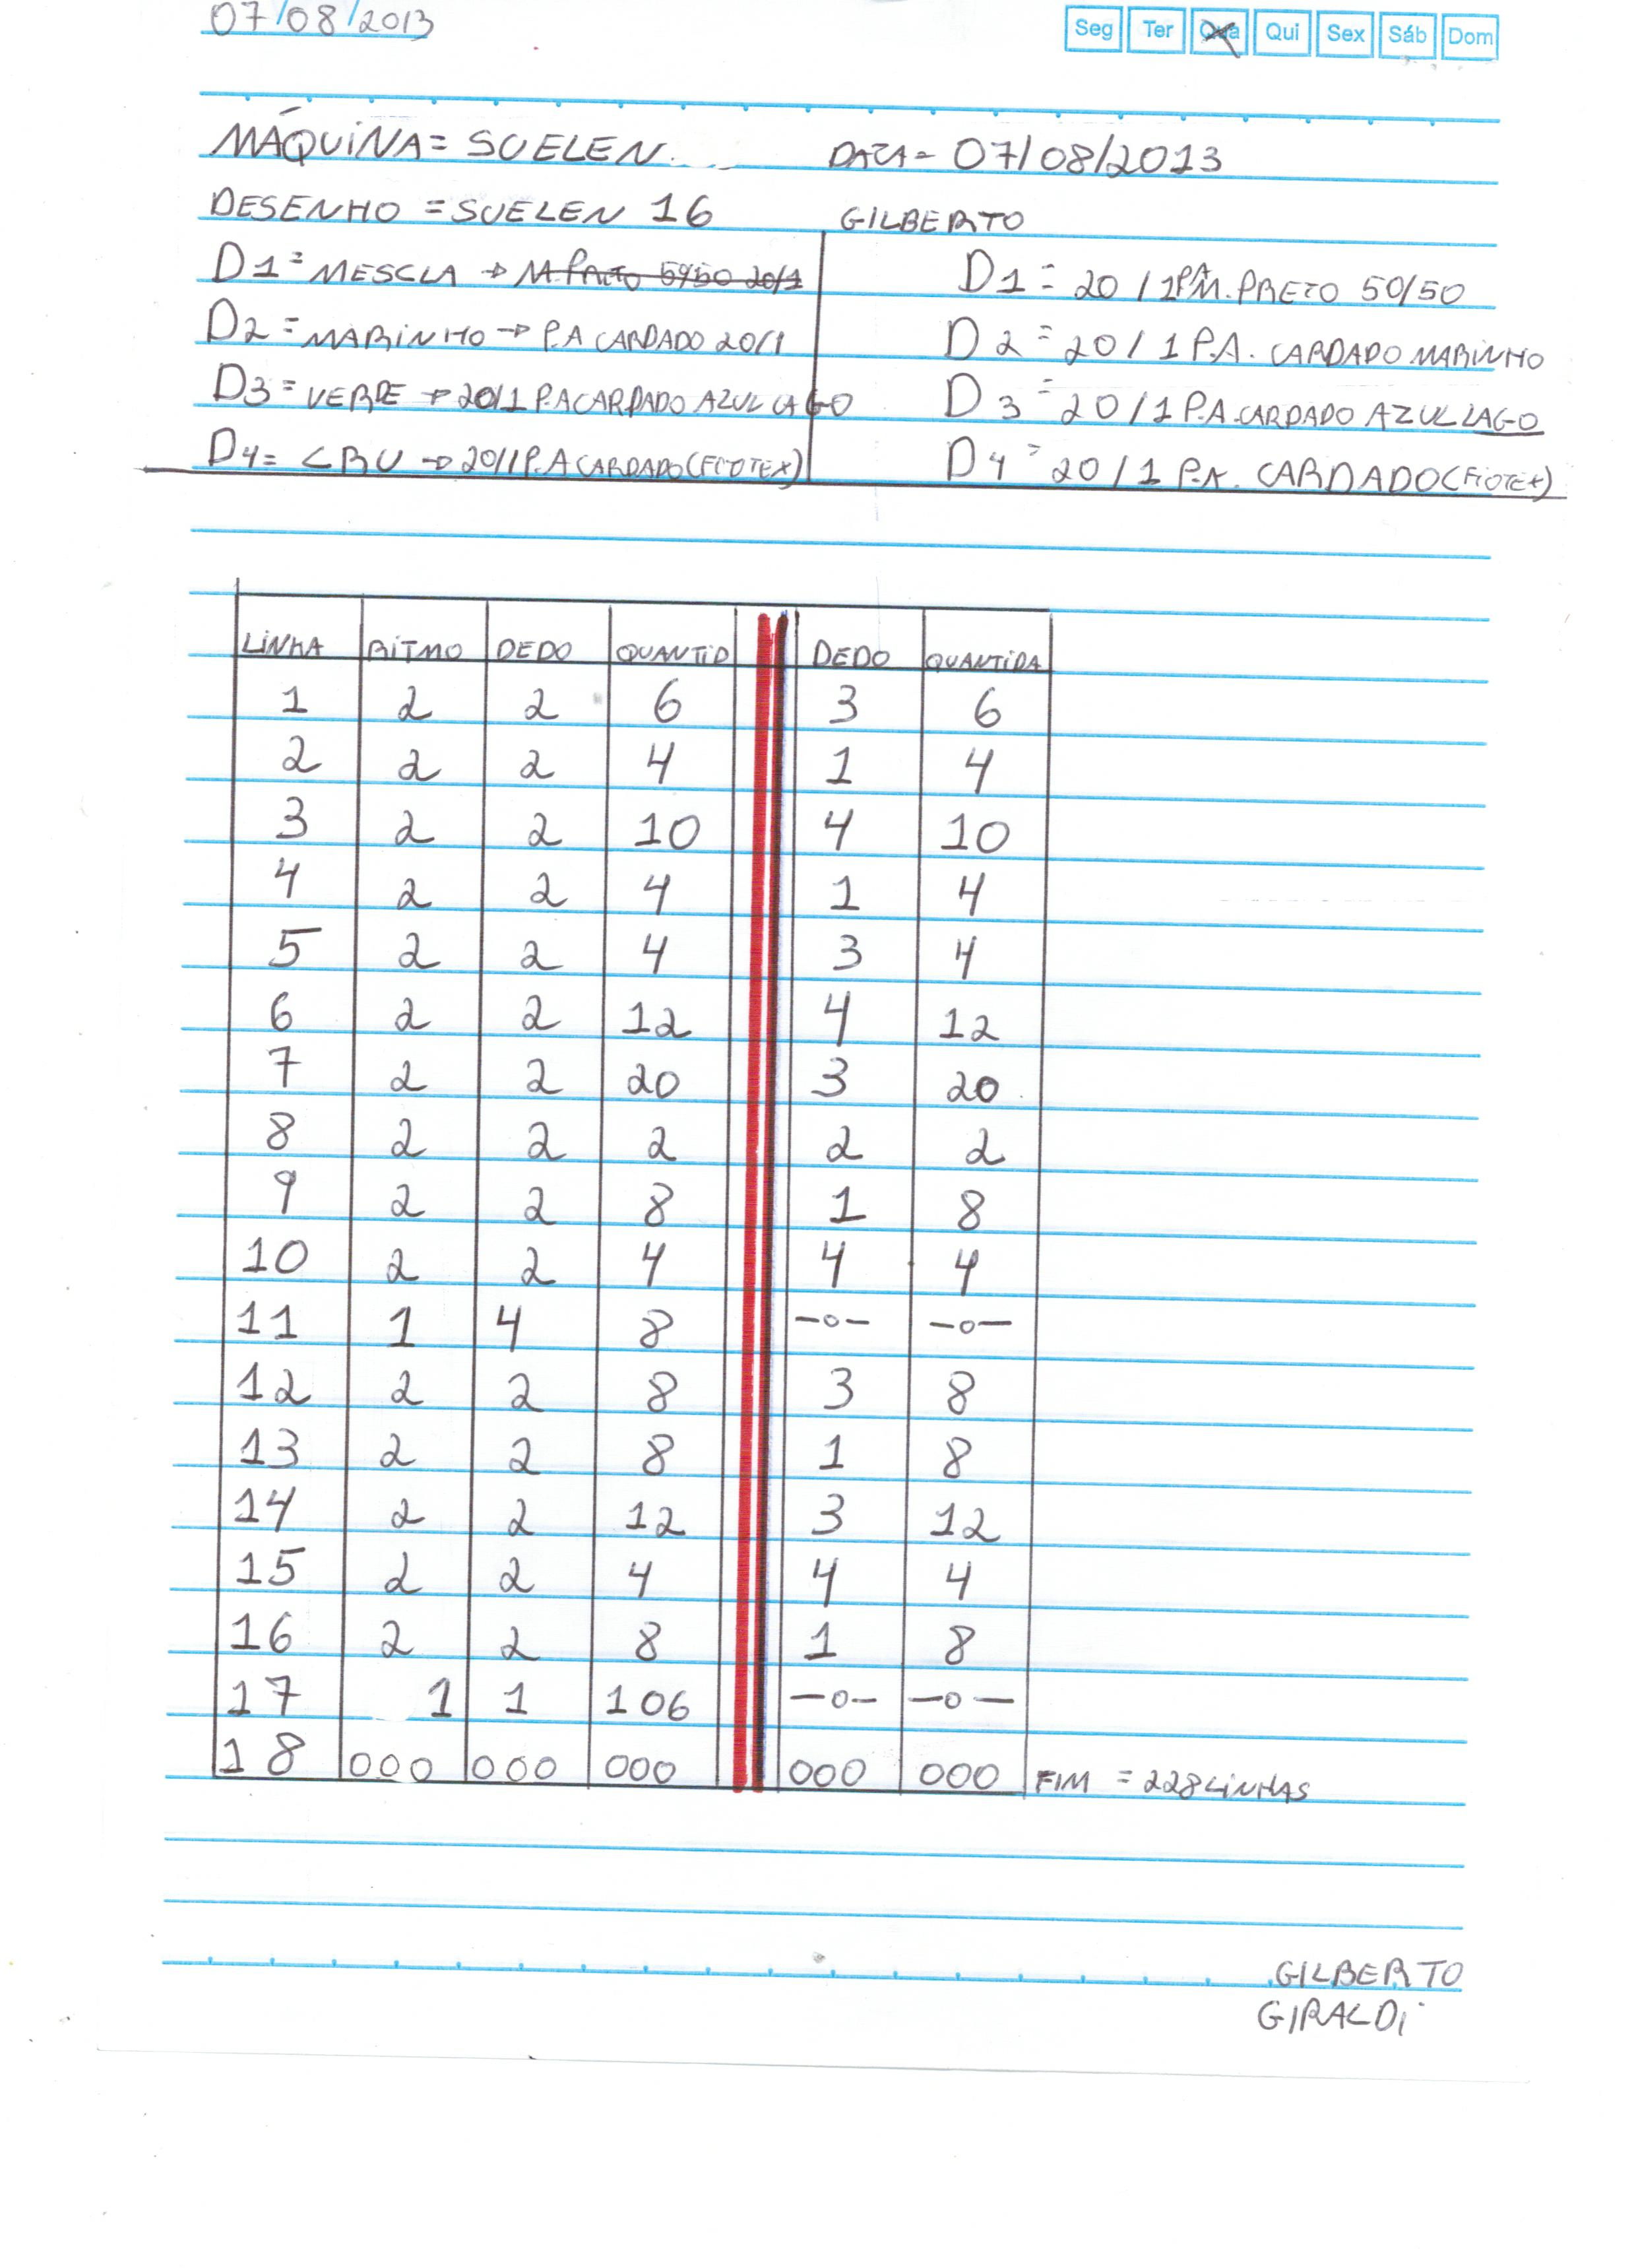 07/08/2013 Seg Ter Qua Qui Sex Sáb Dom
MÁQUINA = SUELEN DATA = 07/08/2013
DESENHO = SUELEN 16 GILBERTO
D1 = MESCLA → M. PRETO 50/50 20/1 D1 = 20/1 PA M. PRETO 50/50
D2 = MARINHO → P.A CARDADO 20/1 D2 = 20/1 P.A. CARDADO MARINHO
D3 = VERDE → 20/1 P.A CARDADO AZUL LAGO D3 = 20/1 P.A. CARDADO AZUL LAGO
D4 = CRU → 20/1 P.A CARDADO (FIOTEX) D4 = 20/1 P.A. CARDADO (FIOTEX)
LINHA RITMO DEDO QUANTID DEDO QUANTIDA
1 2 2 6 3 6
2 2 2 4 1 4
3 2 2 10 4 10
4 2 2 4 1 4
5 2 2 4 3 4
6 2 2 12 4 12
7 2 2 20 3 20
8 2 2 2 2 2
9 2 2 8 1 8
10 2 2 4 4 4
11 1 4 8 —o— —o—
12 2 2 8 3 8
13 2 2 8 1 8
14 2 2 12 3 12
15 2 2 4 4 4
16 2 2 8 1 8
17 1 1 106 —o— —o—
18 000 000 000 000 000 FIM = 228 LINHAS
GILBERTO
GIRALDI